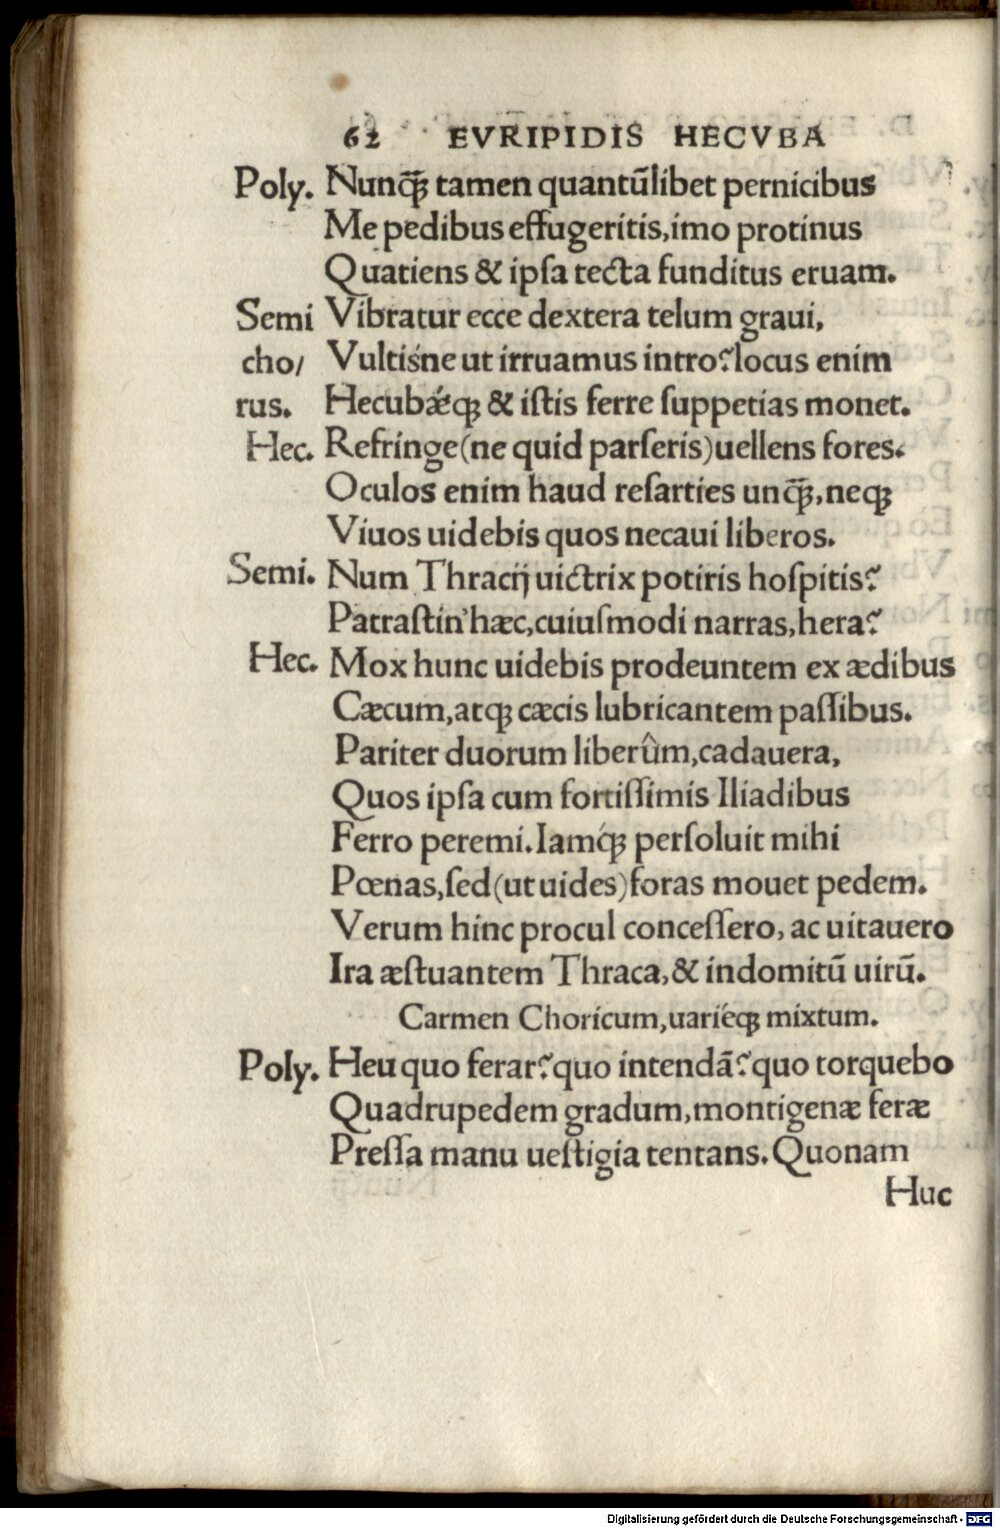 62 EVRIPIDIS HECVBA
Poly. Nunꝗ̃ꝫ tamen quantũlibet pernicibus
Me pedibus effugeritis,imo protinus
Quatiens & ipſa tecta funditus eruam.
Semi Vibratur ecce dextera telum graui,
cho/ Vultiśne ut irruamus intro?locus enim
rus. Hecubǽqꝫ & iſtis ferre ſuppetias monet.
Hec. Refringe(ne quid parſeris)uellens fores.
Oculos enim haud reſarties unꝗ̃ꝫ,neqꝫ
Viuos uidebis quos necaui liberos.
Semi. Num Thracij uictrix potiris hoſpitis?
Patraſtin'hæc,cuiuſmodi narras,hera?
Hec. Mox hunc uidebis prodeuntem ex ædibus
Cæcum,atqꝫ cæcis lubricantem paſſibus.
Pariter duorum liberûm,cadauera,
Quos ipſa cum fortiſſimis Iliadibus
Ferro peremi.Iamq́ꝫ perſoluit mihi
Pœnas,ſed(ut uides)foras mouet pedem.
Verum hinc procul conceſſero, ac uitauero
Ira æſtuantem Thraca,& indomitũ uirũ.
Carmen Choricum,uariéqꝫ mixtum.
Poly. Heu quo ferar?quo intendã?quo torquebo
Quadrupedem gradum,montigenæ feræ
Preſſa manu ueſtigia tentans.Quonam
Huc
Digitalisierung gefördert durch die Deutsche Forschungsgemeinschaft - DFG